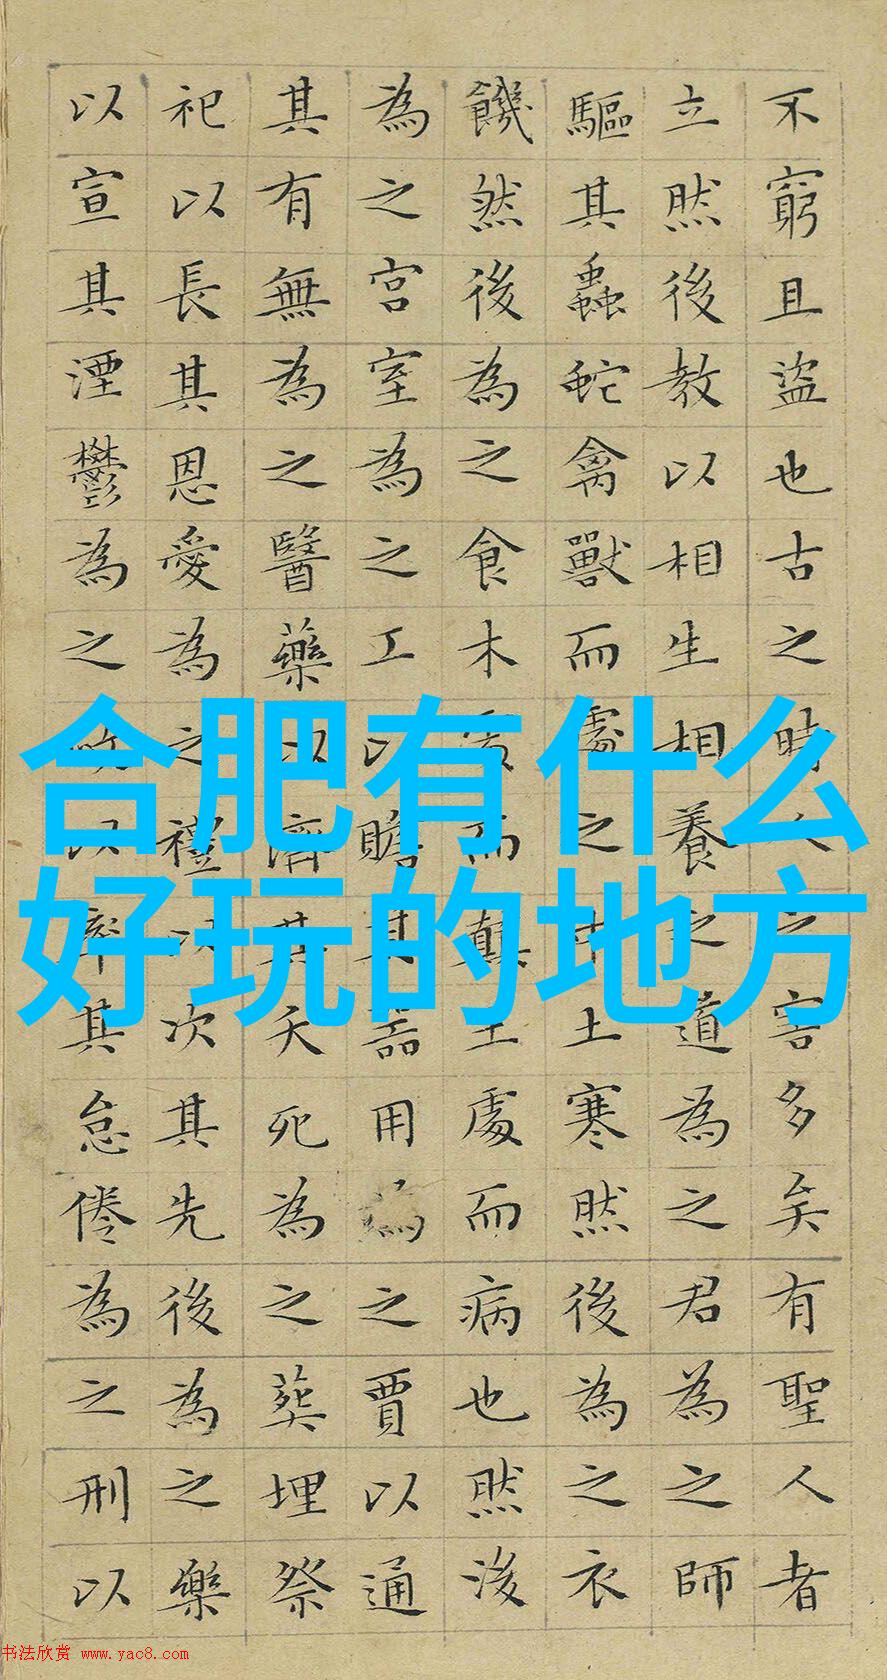 合肥有什么
好玩的地方
不窮且盜也古之時人之害多矣有聖人者
立然後教以相生相養之道為之君為之師
驅其蟲蛇禽獸而處之中土寒然後為之衣
饑然後為之食木處而顛土處而病也然後
為之宮室為之工以贍其器用為之賈以通
其有無為之醫藥以濟其夭死為之葬埋祭
祀以長其恩愛為之禮以次其先後為之樂
以宣其湮鬱為之以率其怠倦為之刑以
书法欣赏 www.yac8.com